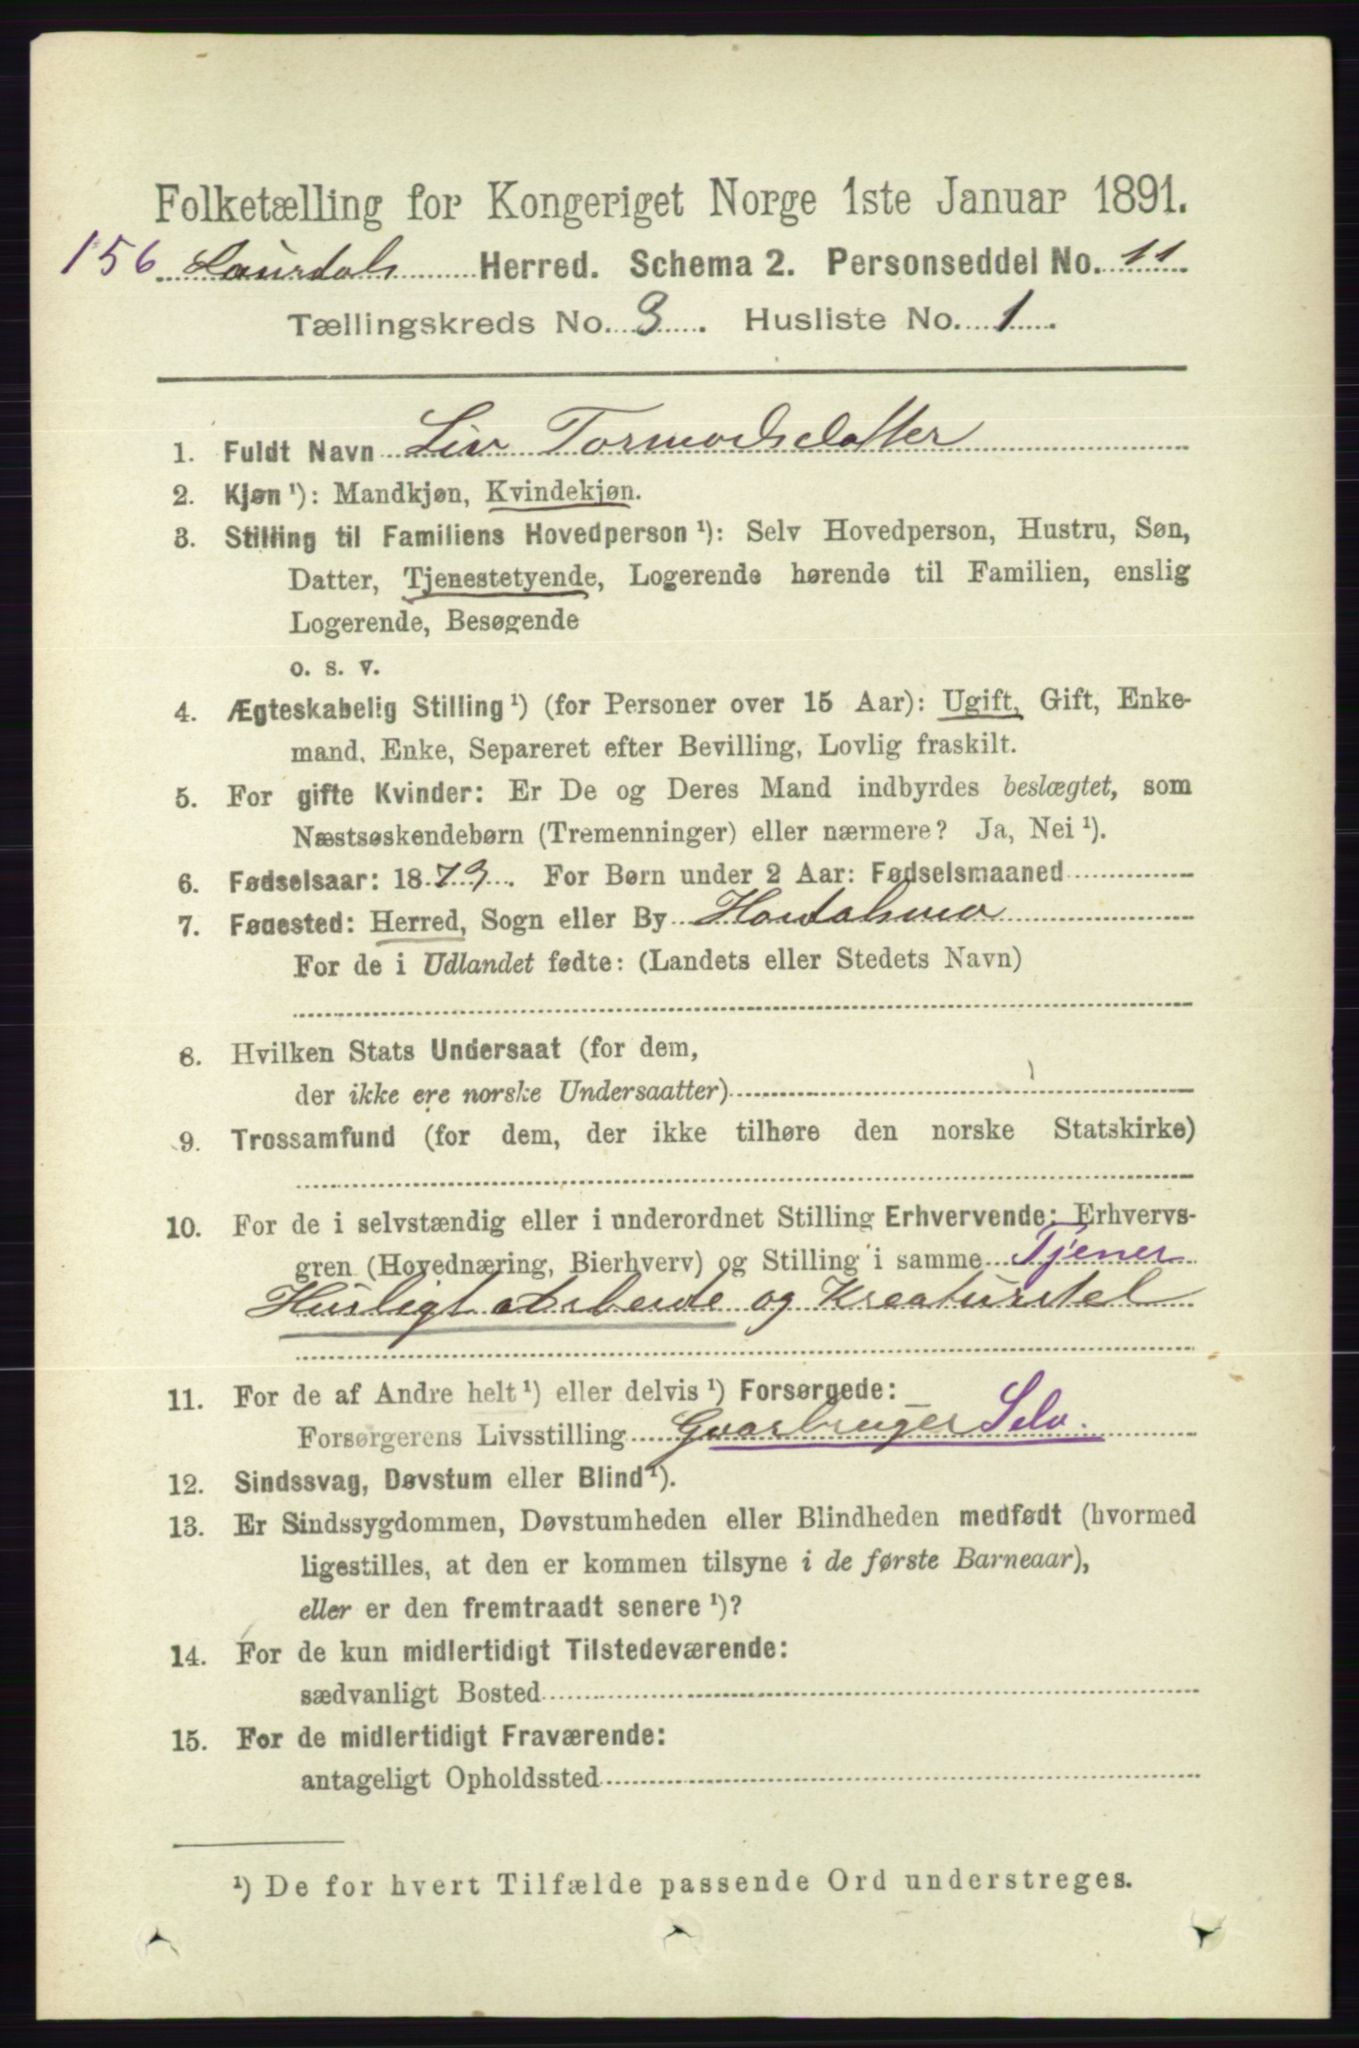 Folketælling for Kongeriget Norge 1ste Januar 1891.
156 Laurdals Herred. Schema 2. Personseddel No. 11
Tællingskreds No. 3. Husliste No. 1.
1. Fuldt Navn Liv Tormodsdatter
2. Kjøn ¹): Mandkjøn, Kvindekjøn.
3. Stilling til Familiens Hovedperson ¹): Selv Hovedperson, Hustru, Søn,
Datter, Tjenestetyende, Logerende hørende til Familien, enslig
Logerende, Besøgende
o. s. v.
4. Ægteskabelig Stilling ¹) (for Personer over 15 Aar): Ugift, Gift, Enke-
mand, Enke, Separeret efter Bevilling, Lovlig fraskilt.
5. For gifte Kvinder: Er De og Deres Mand indbyrdes beslægtet, som
Næstsøskendebørn (Tremenninger) eller nærmere? Ja, Nei ¹).
6. Fødselsaar: 1873. For Børn under 2 Aar: Fødselsmaaned
7. Fødested: Herred, Sogn eller By Hovdalsmo
For de i Udlandet fødte: (Landets eller Stedets Navn)
8. Hvilken Stats Undersaat (for dem,
der ikke ere norske Undersaatter)
9. Trossamfund (for dem, der ikke tilhøre den norske Statskirke)
10. For de i selvstændig eller i underordnet Stilling Erhvervende: Erhvervs-
gren (Hovednæring, Bierhverv) og Stilling i samme Tjener
Husligt arbeide og Kreaturstel
11. For de af Andre helt ¹) eller delvis ¹) Forsørgede:
Forsørgerens Livsstilling Gaarbruger Selv.
12. Sindssvag, Døvstum eller Blind ¹).
13. Er Sindssygdommen, Døvstumheden eller Blindheden medfødt (hvormed
ligestilles, at den er kommen tilsyne i de første Barneaar),
eller er den fremtraadt senere ¹)?
14. For de kun midlertidigt Tilstedeværende:
sædvanligt Bosted
15. For de midlertidigt Fraværende:
antageligt Opholdssted
¹) De for hvert Tilfælde passende Ord understreges.